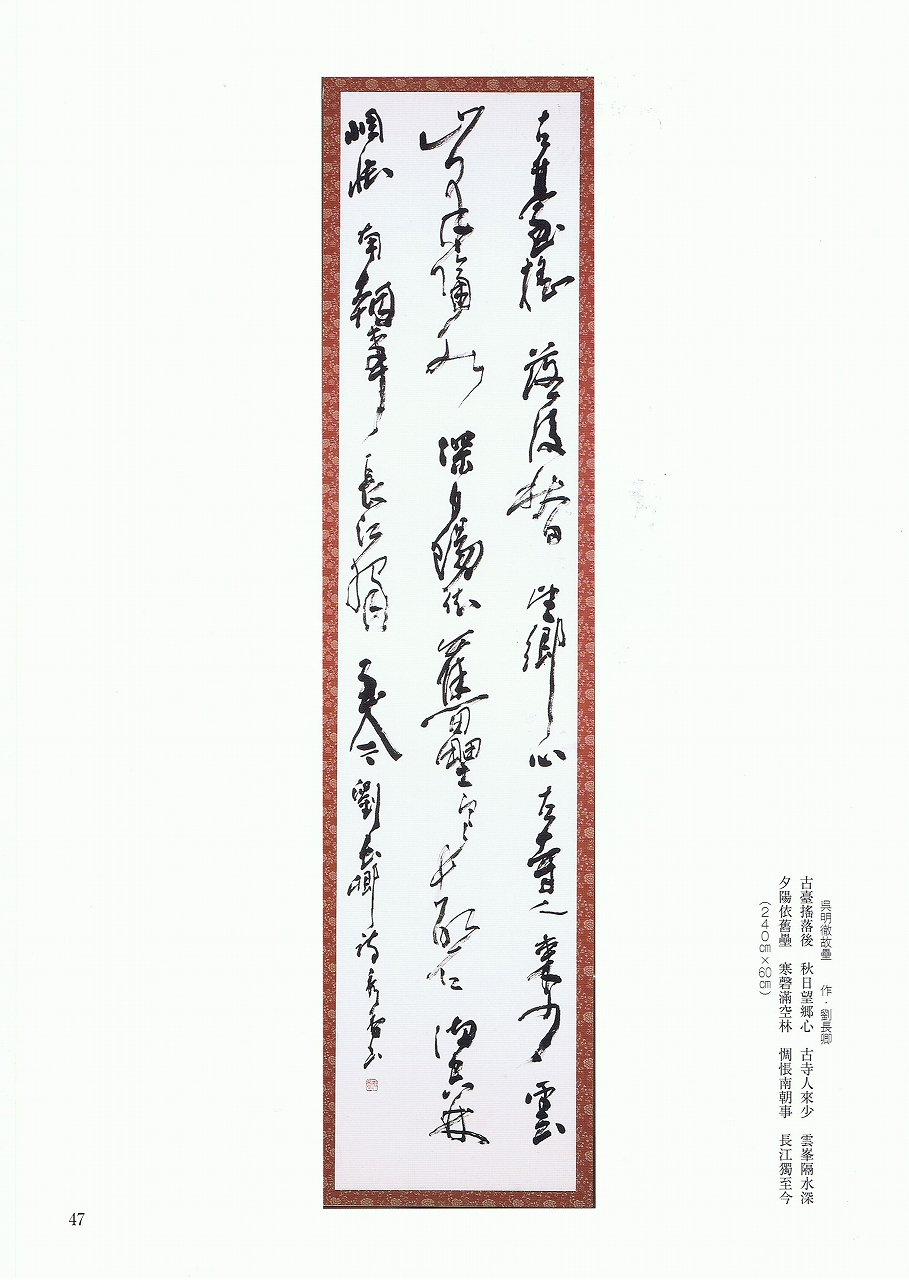 古臺搖落後秋日望鄉心古寺人來少雲
峯隔水深夕陽依舊壘寒磬滿空林
惆悵南朝事長江獨至今劉長卿詩
吳明徹故壘　作・劉長卿
古臺搖落後　秋日望鄉心　古寺人來少　雲峯隔水深
夕陽依舊壘　寒磬滿空林　惆悵南朝事　長江獨至今
（240㎝×60㎝）
47